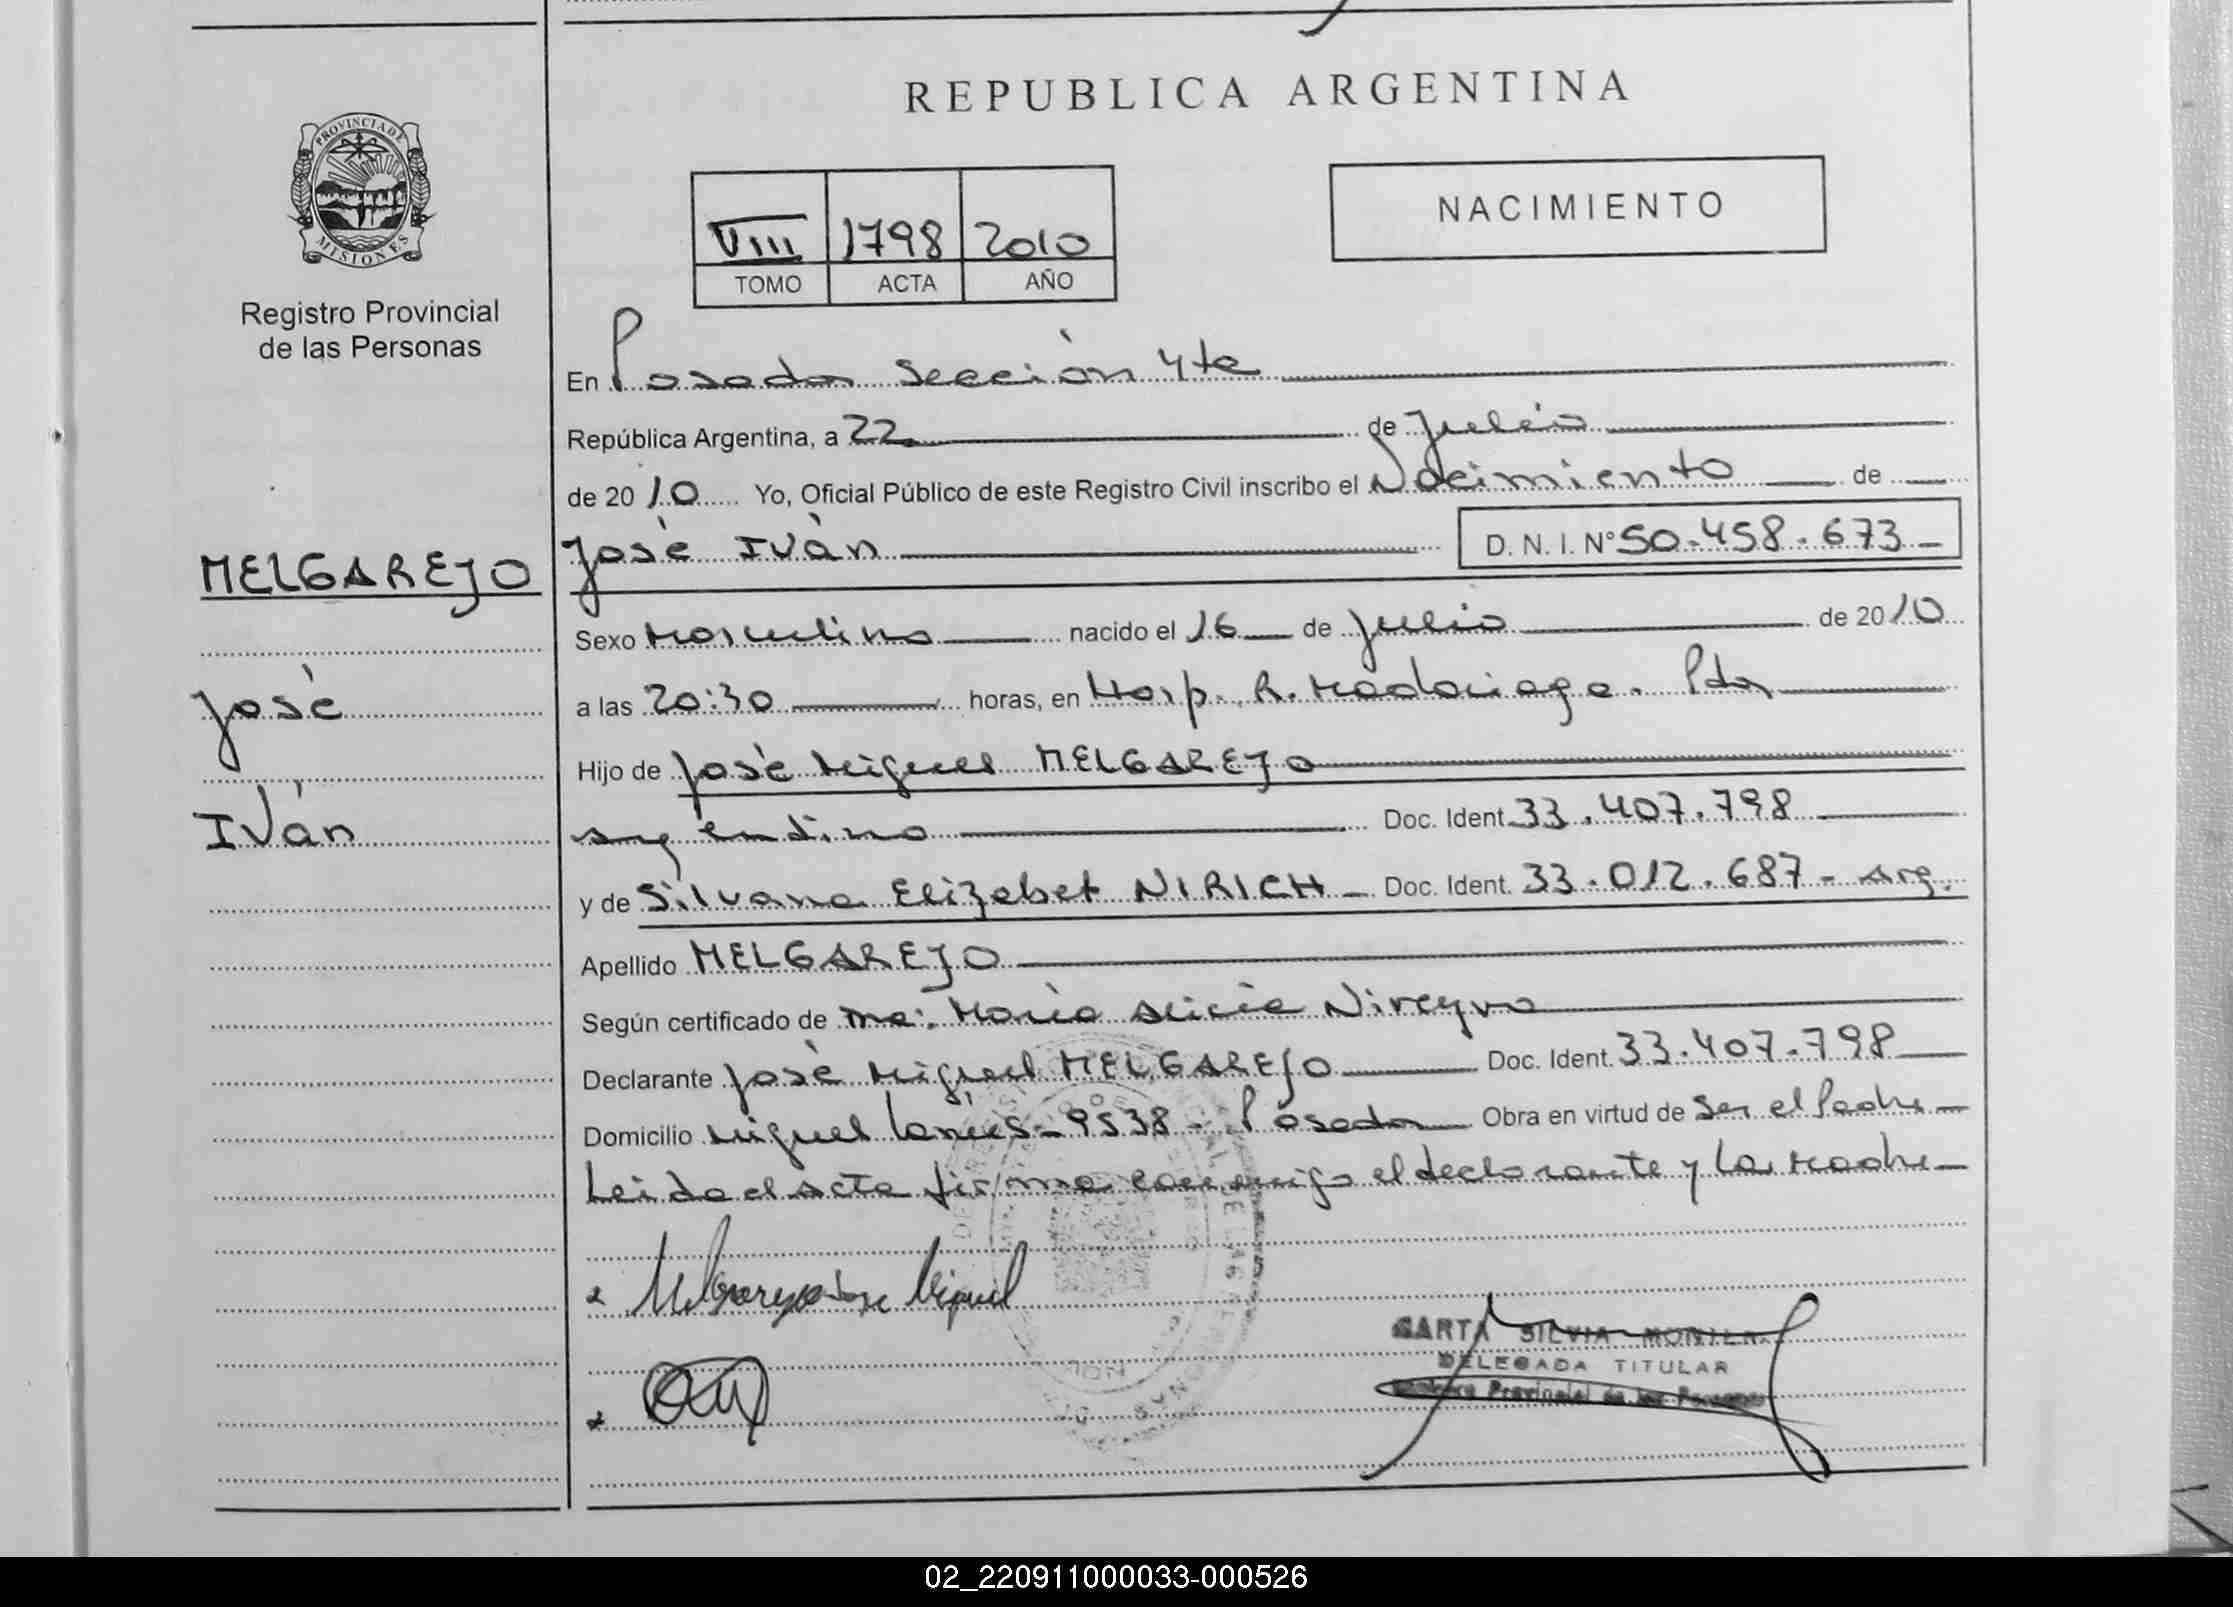 REPUBLICA ARGENTINA
PROVINCIA DE
MISIONES
Registro Provincial
de las Personas
VIII 1798 2010
TOMO ACTA AÑO
NACIMIENTO
En Posadas Sección 4ta
República Argentina, a 22 de Julio
de 2010 Yo, Oficial Público de este Registro Civil inscribo el Nacimiento de
José Iván D. N. I. N° 50.458.673
MELGAREJO
José
Iván
Sexo Masculino nacido el 16 de Julio de 2010
a las 20:30 horas, en Hosp. R. Madariaga. Pdas
Hijo de José Miguel MELGAREJO
argentino Doc. Ident. 33.407.798
y de Silvana Elizabet NIRICH Doc. Ident. 33.012.687 - Arg.
Apellido MELGAREJO
Según certificado de María Alicia
Declarante José Miguel MELGAREJO Doc. Ident. 33.407.798
Domicilio Miguel 9538 - Posadas Obra en virtud de Ser el Padre
Leida el acta firma conmigo el declarante y la Madre
Melgarejo Jose Miguel
SILVIA
DELEGADA TITULAR
Registro Provincial de las Personas
02_220911000033-000526